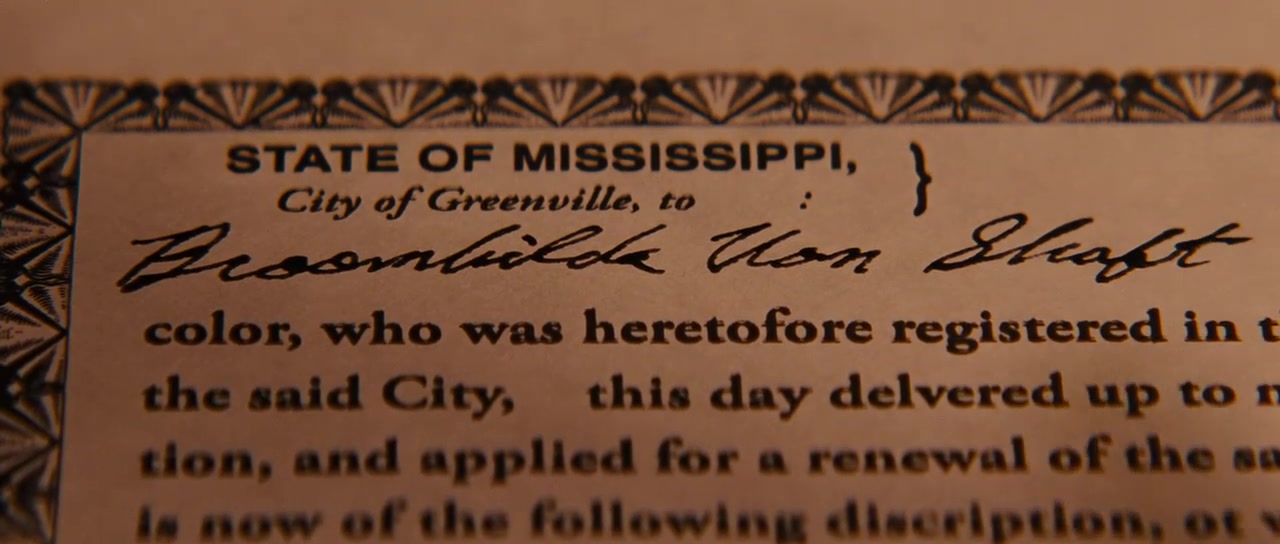 STATE OF MISSISSIPPI, }
City of Greenville, to :
Broomhilda Von Shaft
color, who was heretofore registered in
the said City, this day delvered up to
tion, and applied for a renewal of the
is now of the following discription, ot